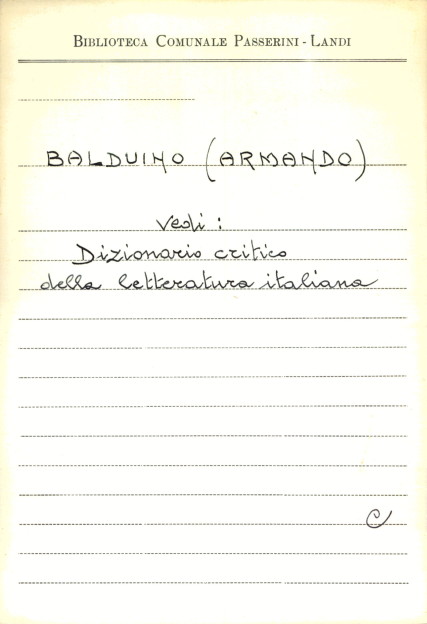 BIBLIOTECA COMUNALE PASSERINI - LANDI
BALDUINO (ARMANDO)
Vedi :
Dizionario critico
della letteratura italiana
C